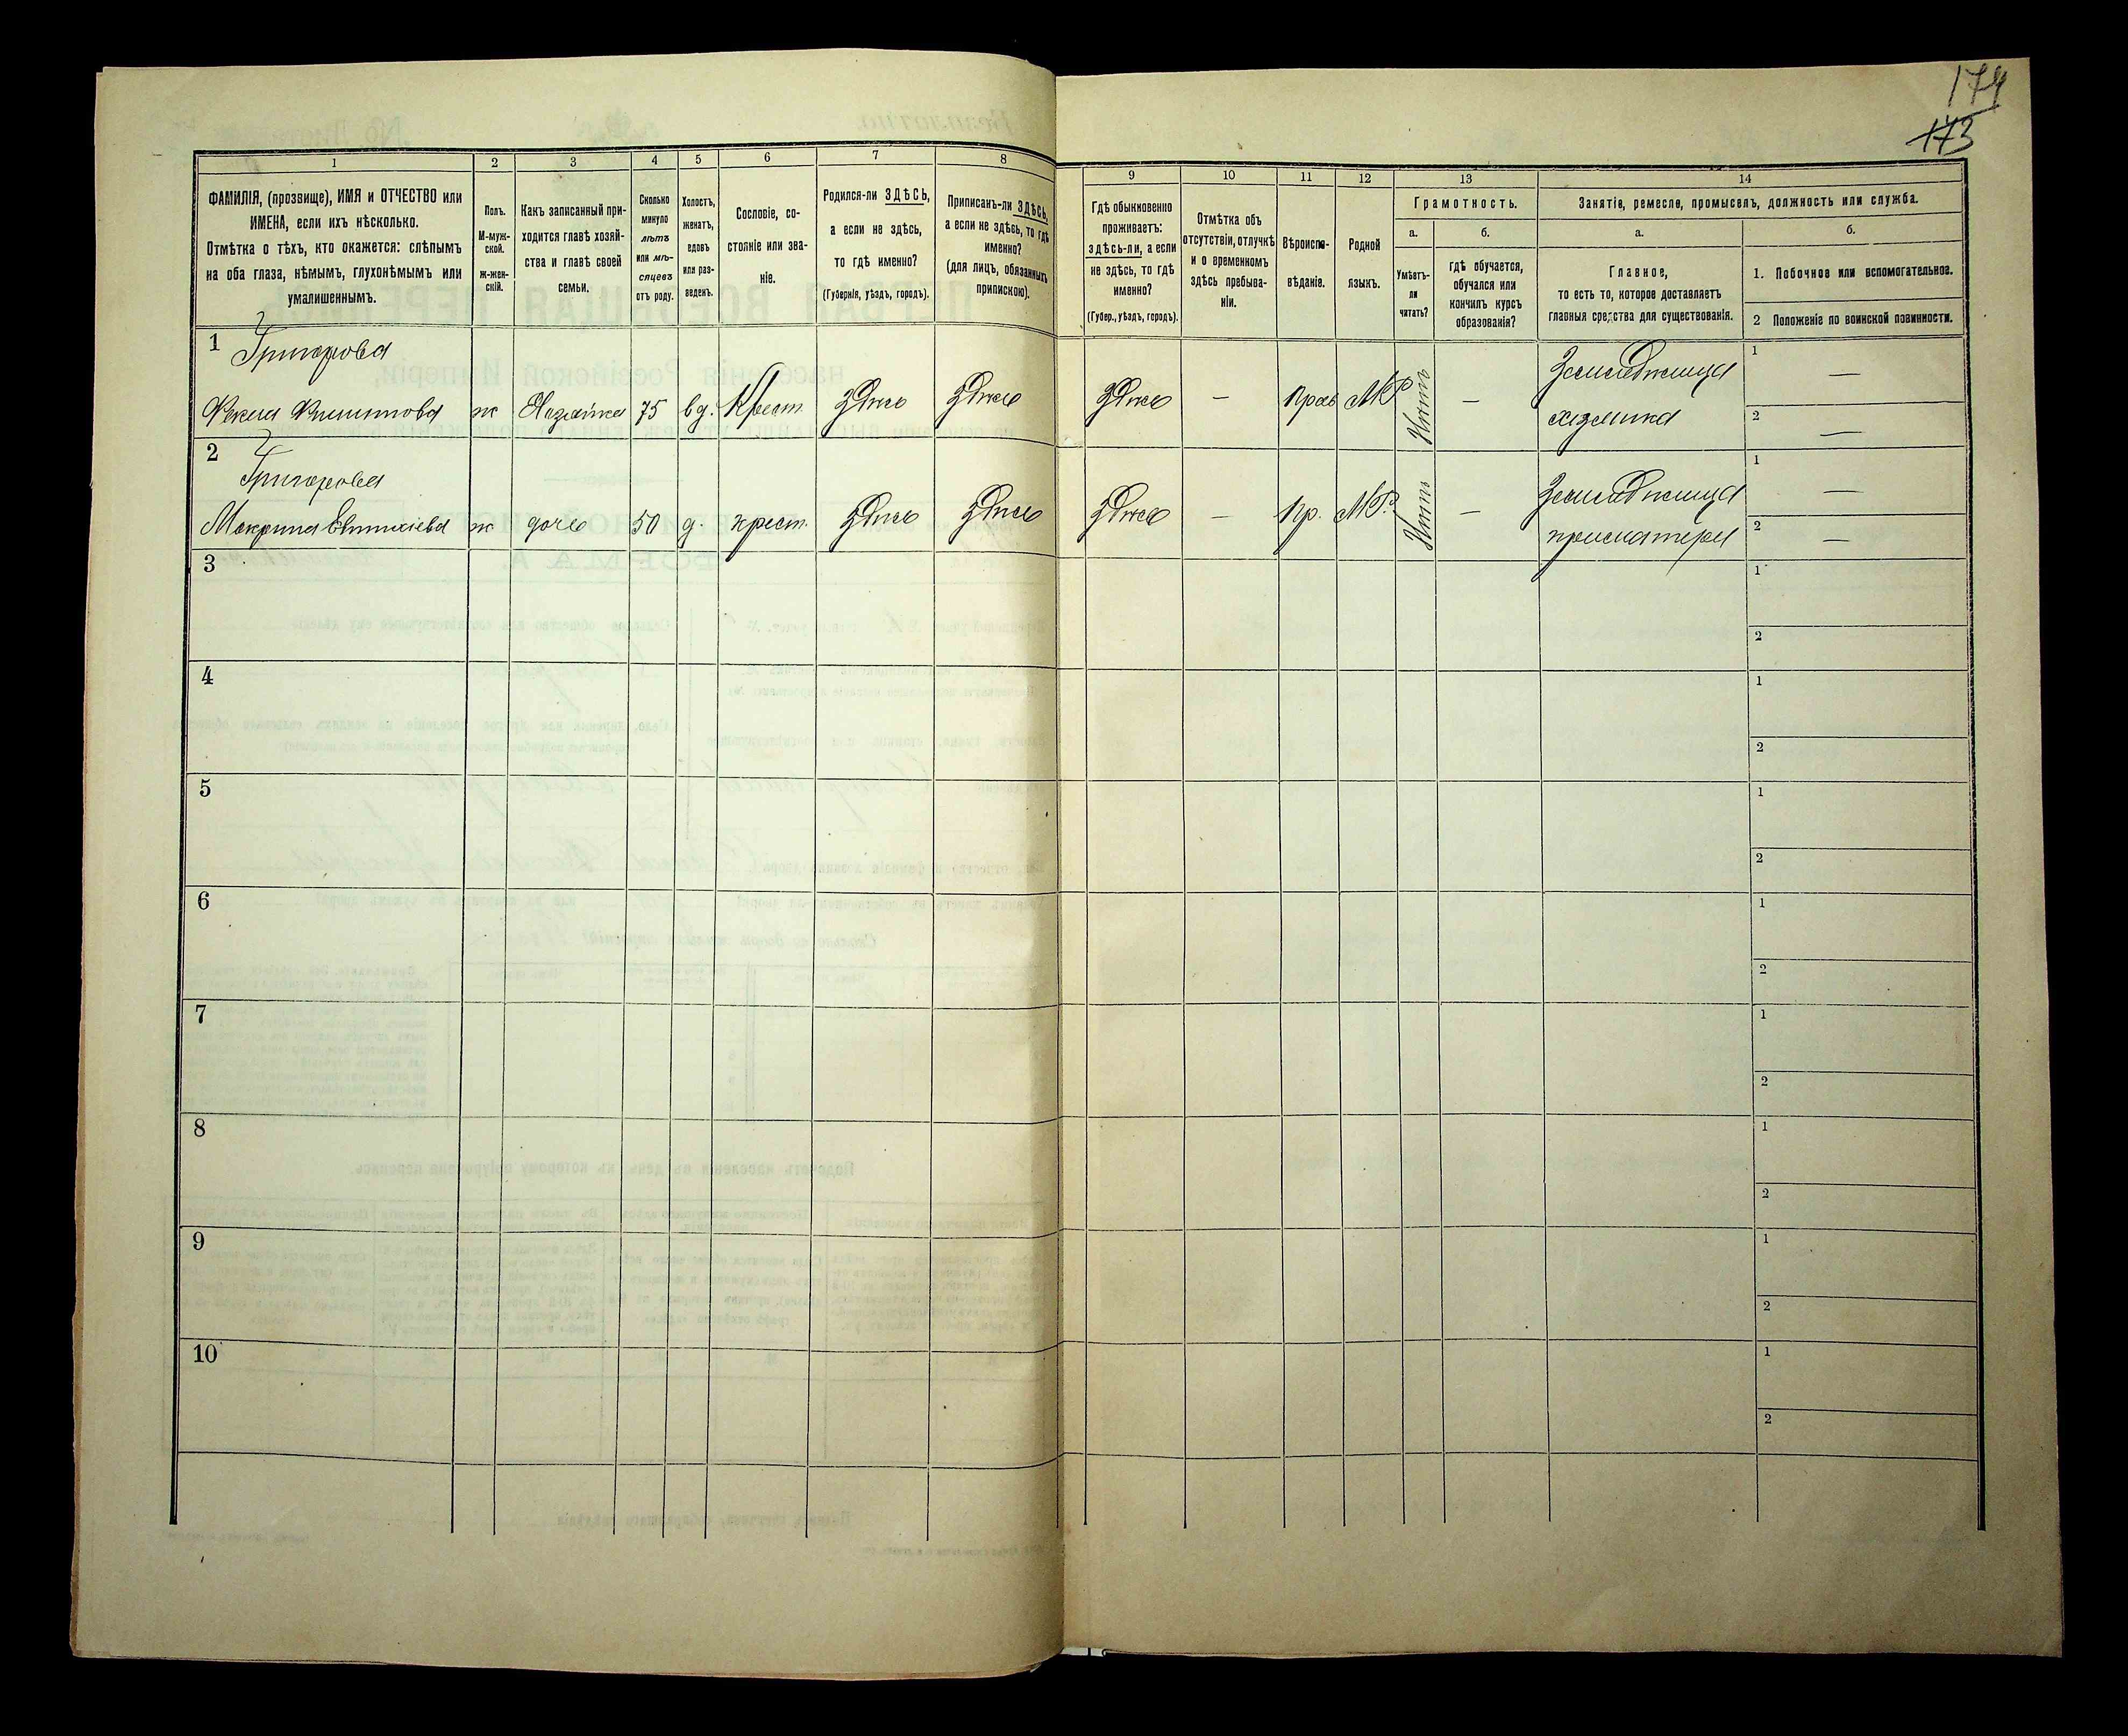 174
173
1
2
3
4
5
6
7
8
ФАМИЛІЯ, (прозвище), ИМЯ и ОТЧЕСТВО или
ИМЕНА, если ихъ нѣсколько.
Отмѣтка о тѣхъ, кто окажется: слѣпымъ
на оба глаза, нѣмымъ, глухонѣмымъ или
умалишеннымъ.
Полъ.
М-муж-
ской.
ж-жен-
скій.
Какъ записанный при-
ходится главѣ хозяй-
ства и главѣ своей
семьи.
Сколько
минуло
лѣтъ
или мѣ-
сяцевъ
отъ роду.
Холостъ,
женатъ,
вдовъ
или раз-
веденъ.
Сословіе, со-
стояніе или зва-
ніе.
Родился-ли ЗДѢСЬ,
а если не здѣсь,
то гдѣ именно?
(Губернія, уѣздъ, городъ).
Приписанъ-ли ЗДѢСЬ,
а если не здѣсь, то гдѣ
именно?
(для лицъ, обязанныхъ
припискою).
9
10
11
12
13
14
Гдѣ обыкновенно
проживаетъ:
здѣсь-ли, а если
не здѣсь, то гдѣ
именно?
(Губер., уѣздъ, городъ).
Отмѣтка объ
отсутствіи, отлучкѣ
и о временномъ
здѣсь пребыва-
ніи.
Вѣроиспо-
вѣданіе.
Родной
языкъ.
Грамотность.
а.
Умѣетъ-
ли
читать?
б.
гдѣ обучается,
обучался или
кончилъ курсъ
образованія?
Занятіе, ремесло, промыселъ, должность или служба.
а.
Главное,
то есть то, которое доставляетъ
главныя средства для существованія.
б.
1. Побочное или вспомогательное.
2 Положеніе по воинской повинности.
1 Григорова
Фекла Филиппова ж Хозяйка 75 вд. Крест. здѣсь здѣсь здѣсь — прав МР Нѣтъ — Земледѣлица 1 —
хозяйка 2 —
2 Григорова
Макрина Евтихіева ж дочь 50 д. крест. здѣсь здѣсь здѣсь — пр. МР. Нѣтъ — Земледѣлица 1 —
при матери 2 —
3 1
2
4 1
2
5 1
2
6 1
2
7 1
2
8 1
2
9 1
2
10 1
2